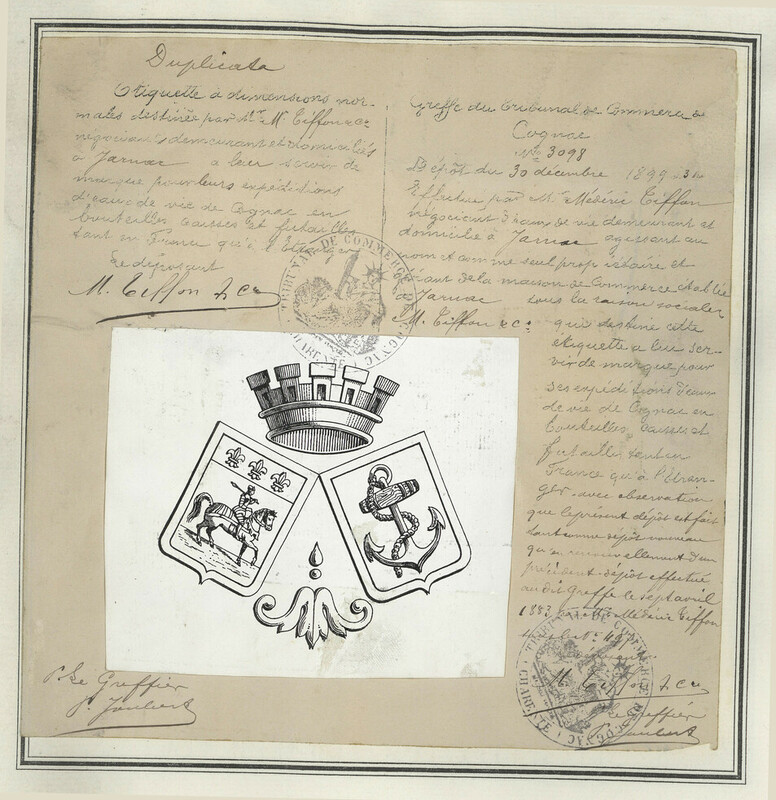 Duplicata
Etiquette à dimensions nor-
males destinée par Mr. M. Tiffon & Ce
négociants demeurant et domiciliés
à Jarnac a leur servir de
marque pour leurs expéditions
d'eaux de vie de Cognac en
bouteilles caisses et futailles
tant en France qu'à l'Etranger
Le déposant
M. Tiffon & Ce
Greffe du Tribunal de Commerce de
Cognac
No. 3098
Dépôt du 30 décembre 1899
Effectué par Mr. Médéric Tiffon
négociant d'eaux de vie demeurant et
domicilié à Jarnac agissant au
nom et comme seul propriétaire et
gérant de la maison de commerce établie
à Jarnac sous la raison sociale
M. Tiffon & Ce qui destine cette
étiquette a leur ser-
vir de marque pour
ses expéditions d'eaux
de vie de Cognac en
bouteilles caisses et
futailles tant en
France qu'à l'Etran-
ger avec observation
que le présent dépôt est fait
tant comme dépôt nouveau
qu'en renouvellement d'un
précédent dépôt effectué
au dit Greffe le sept avril
1883 par Mr. Médéric Tiffon
M. Tiffon & Ce
Le Greffier
Joubert
P. Le Greffier
Joubert
TRIBUNAL DE COMMERCE DE COGNAC
CHARENTE
TRIBUNAL DE COMMERCE DE COGNAC
CHARENTE